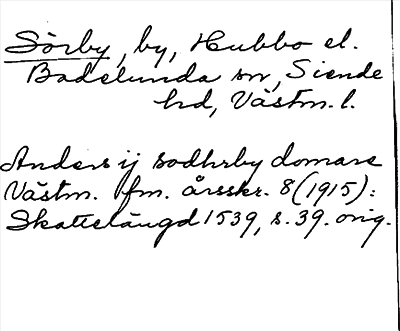 Sörby, by, Hubbo el.
Badelunda sn, Siende
hd, Västm. l.
Anders ij sodhrby domare
Västm. fm. årsskr. 8 (1915):
Skattelängd 1539, s. 39. orig.